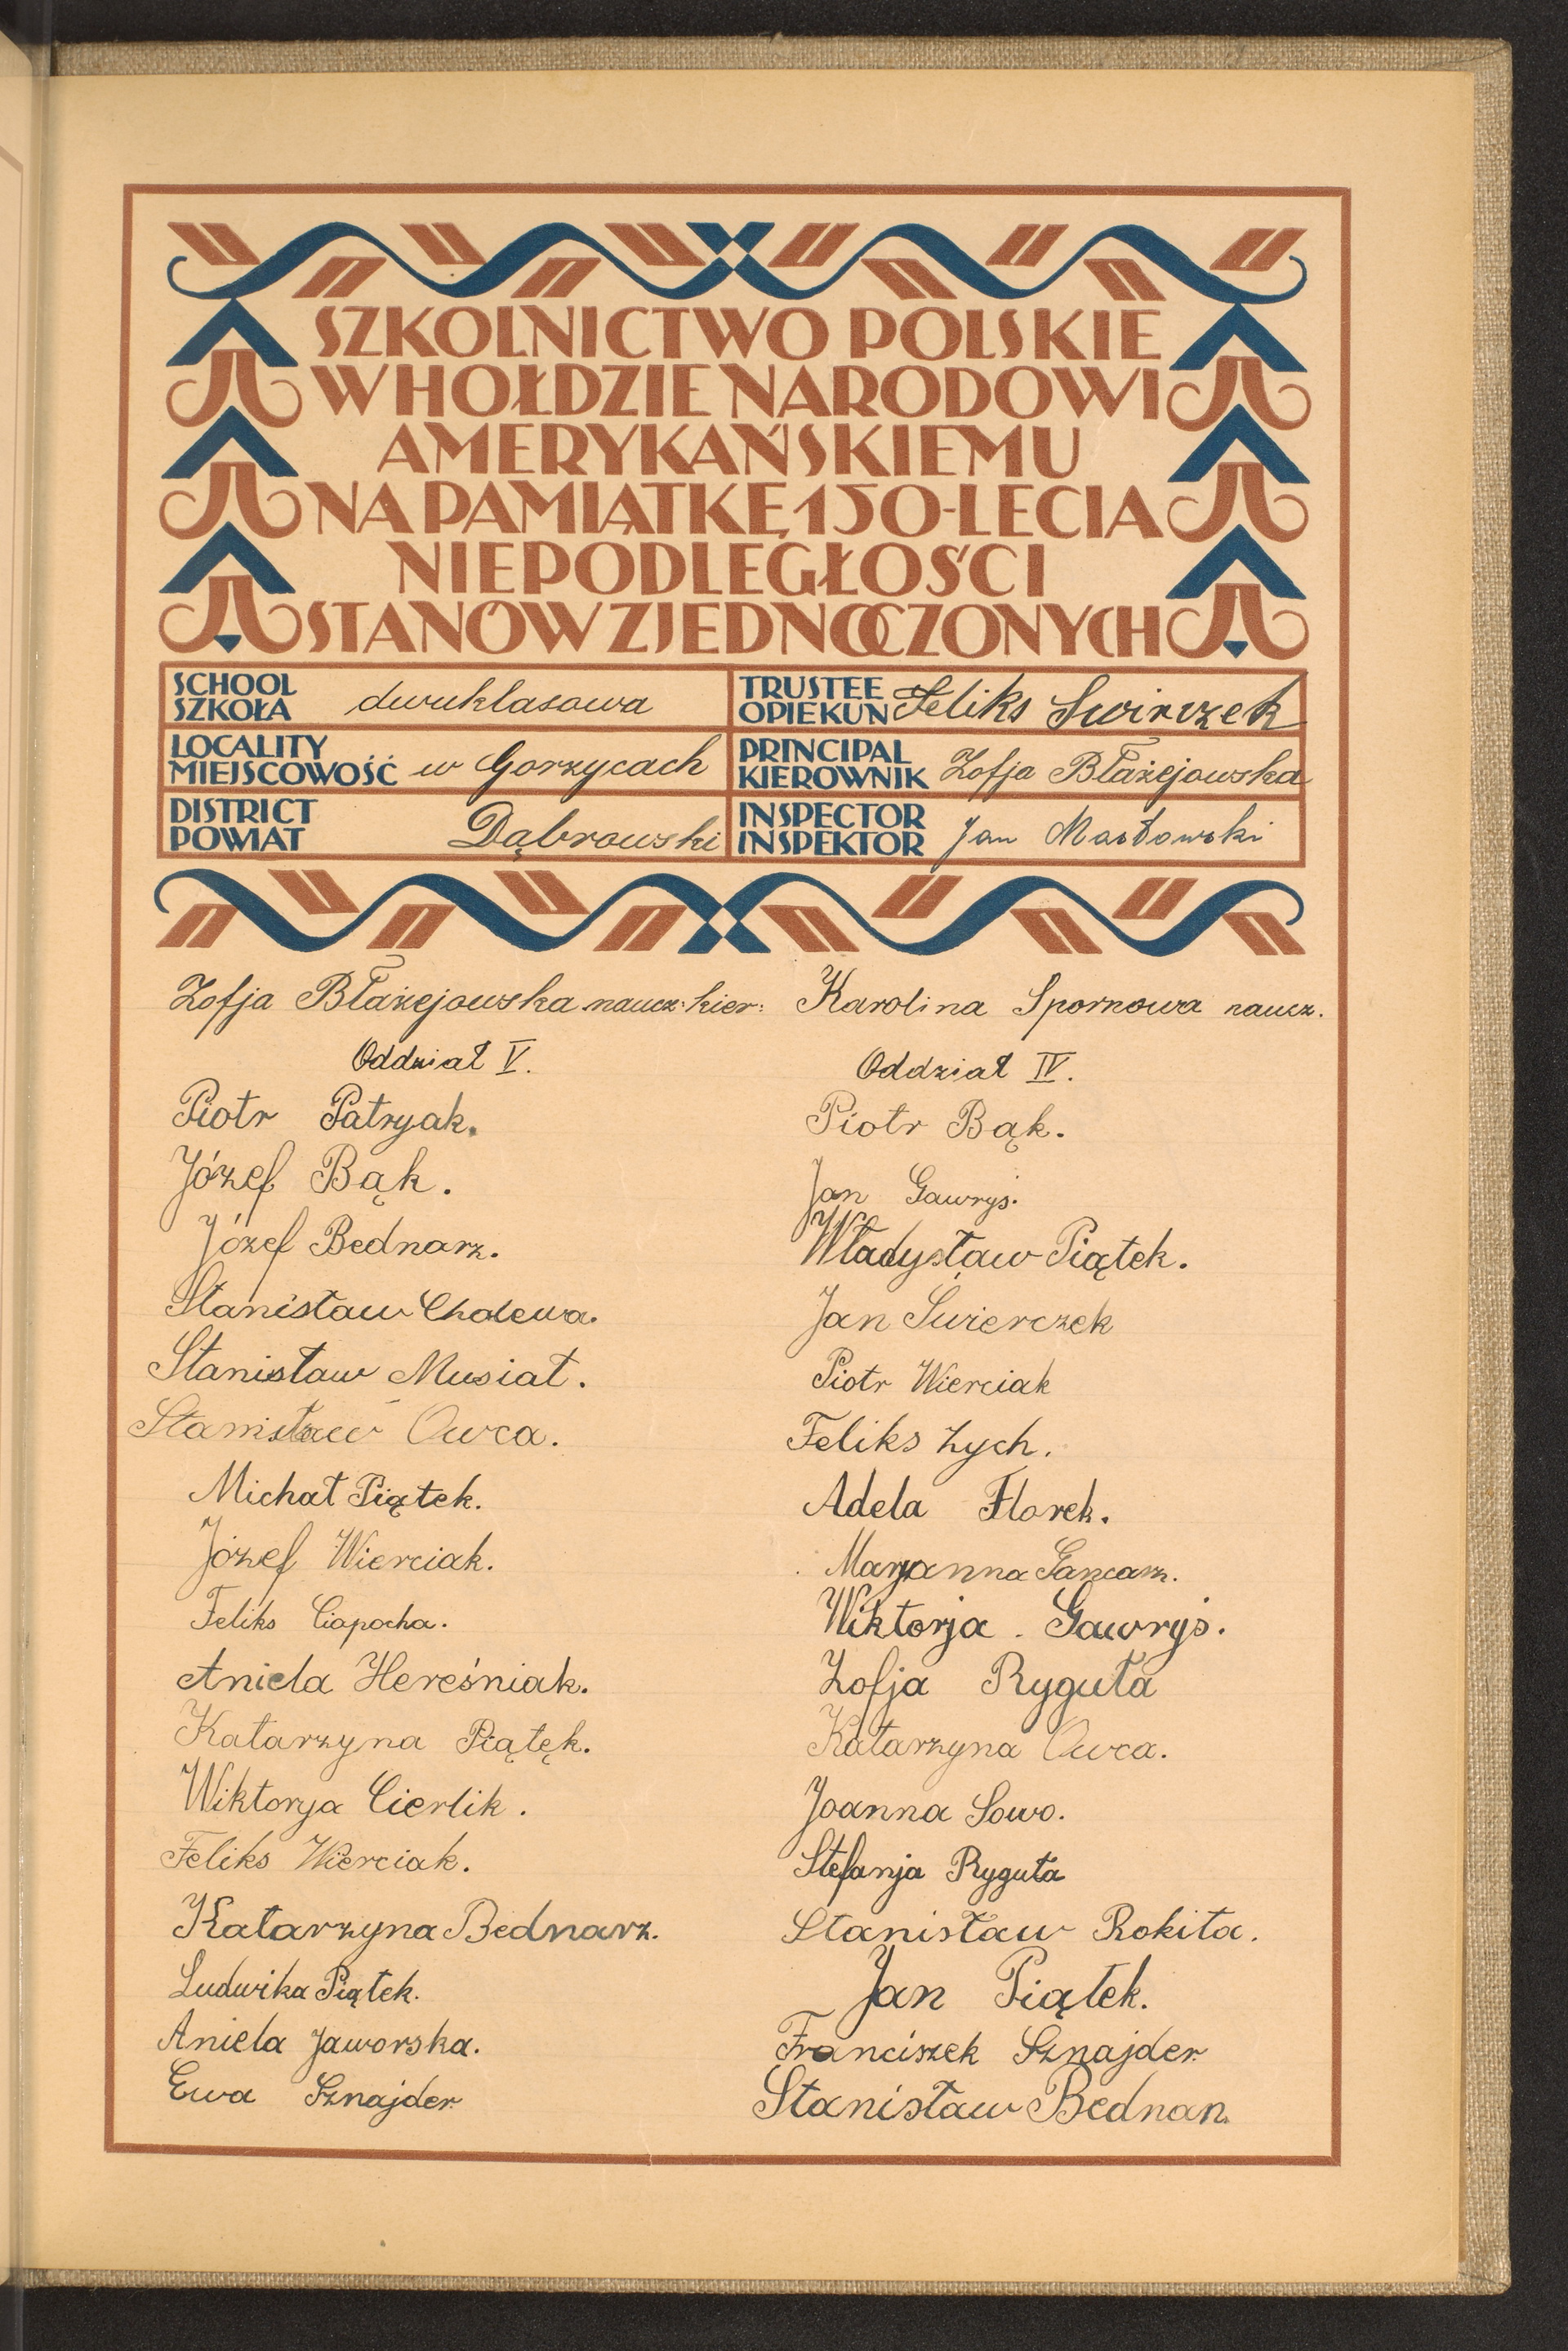 SZKOLNICTWO POLSKIE
W HOŁDZIE NARODOWI
AMERYKAŃSKIEMU
NA PAMIĄTKĘ 150-LECIA
NIEPODLEGŁOŚCI
STANÓW ZJEDNOCZONYCH
SCHOOL
SZKOŁA dwuklasowa
TRUSTEE
OPIEKUN Feliks Swirczek
LOCALITY
MIEJSCOWOŚĆ w Gorzycach
PRINCIPAL
KIEROWNIK Zofja Błażejowska
DISTRICT
POWIAT Dąbrowski
INSPECTOR
INSPEKTOR Jan Masłowski
Zofja Błażejowska naucz: kier:
Oddział V.
Piotr Patryak.
Józef Bąk.
Józef Bednarz.
Stanisław Cholewa.
Stanisław Musiał.
Stanisław Owca.
Michał Piątek.
Józef Wierciak.
Feliks Ciapocha.
Aniela Hereśniak.
Katarzyna Piątęk.
Wiktorya Cierlik.
Feliks Wierciak.
Katarzyna Bednarz.
Ludwika Piątek.
Aniela Jaworska.
Ewa Sznajder
Karolina Spornowa naucz.
Oddział IV.
Piotr Bąk.
Jan Gawryś.
Władysław Piątek.
Jan Świerczek
Piotr Wierciak
Feliks Zych.
Adela Florek.
Maryanna Gancarz.
Wiktorja Gawryś.
Zofja Ryguła
Katarzyna Owca.
Joanna Sowo.
Stefanja Ryguła
Stanisław Rokita.
Jan Piątek.
Franciszek Sznajder.
Stanisław Bednarz